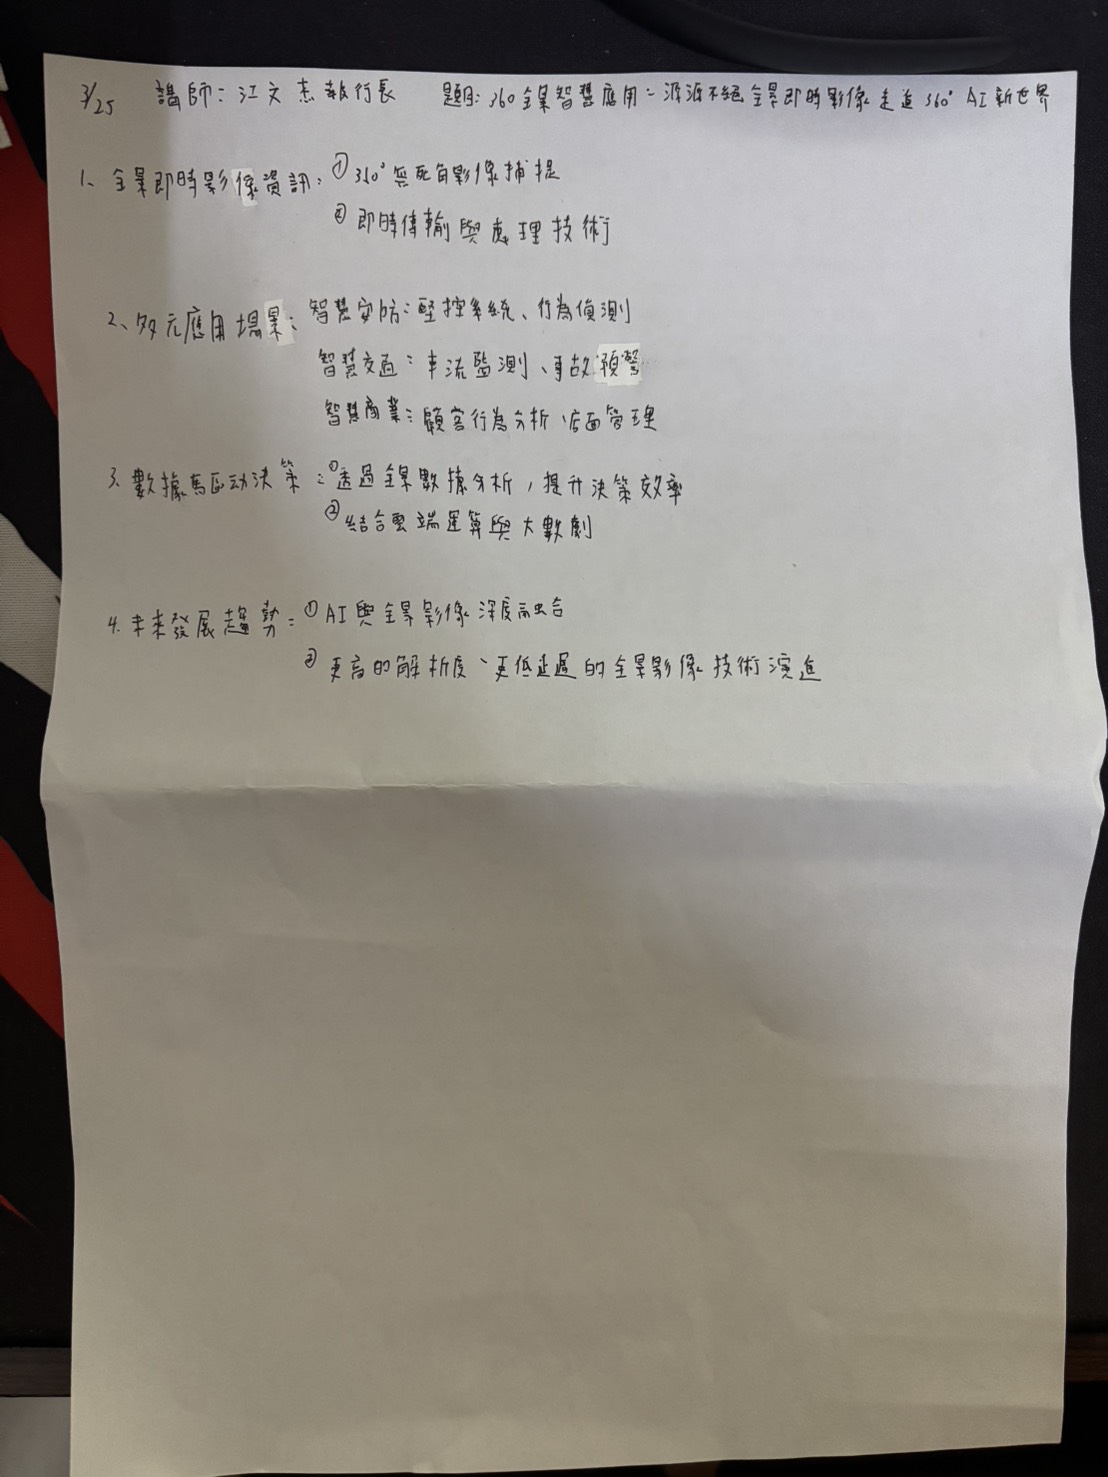 3/25 講師：江文杰執行長 題目：360全景智慧應用－源源不絕全景即時影像走進360° AI新世界
1、全景即時影像資訊：①360°無死角影像捕捉
②即時傳輸與處理技術
2、多元應用場景：智慧安防：監控系統、行為偵測
智慧交通：車流監測、事故預警
智慧商業：顧客行為分析、店面管理
3、數據驅动決策：①透過全景數據分析，提升決策效率
②結合雲端運算與大數劇
4.未來發展趨勢：①AI與全景影像深度融合
②更高的解析度、更低延遲的全景影像技術演進